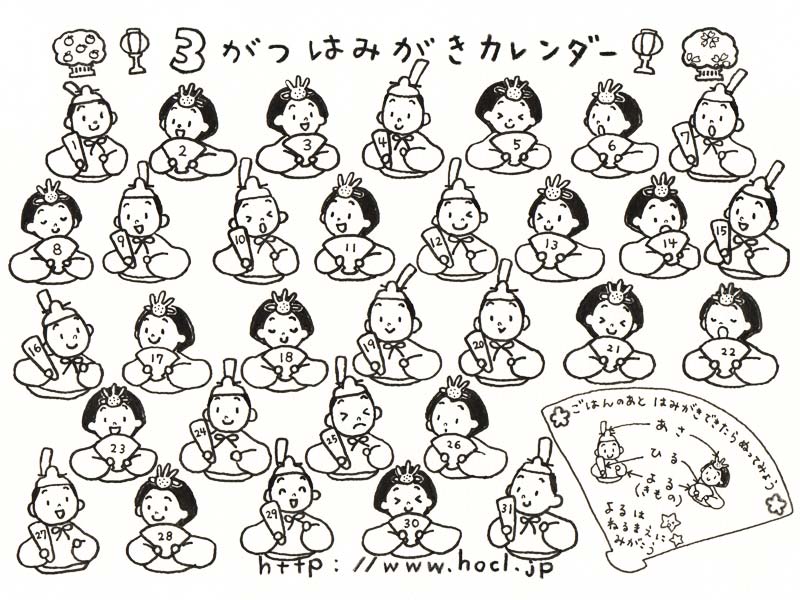 3がつ はみがきカレンダー
1 2 3 4 5 6 7
8 9 10 11 12 13 14 15
16 17 18 19 20 21 22
23 24 25 26
27 28 29 30 31
ごはんのあと はみがきできたら ぬってみよう
あさ
ひる
よる
(きもの)
よるは
ねるまえに
みがこう
http://www.hocl.jp